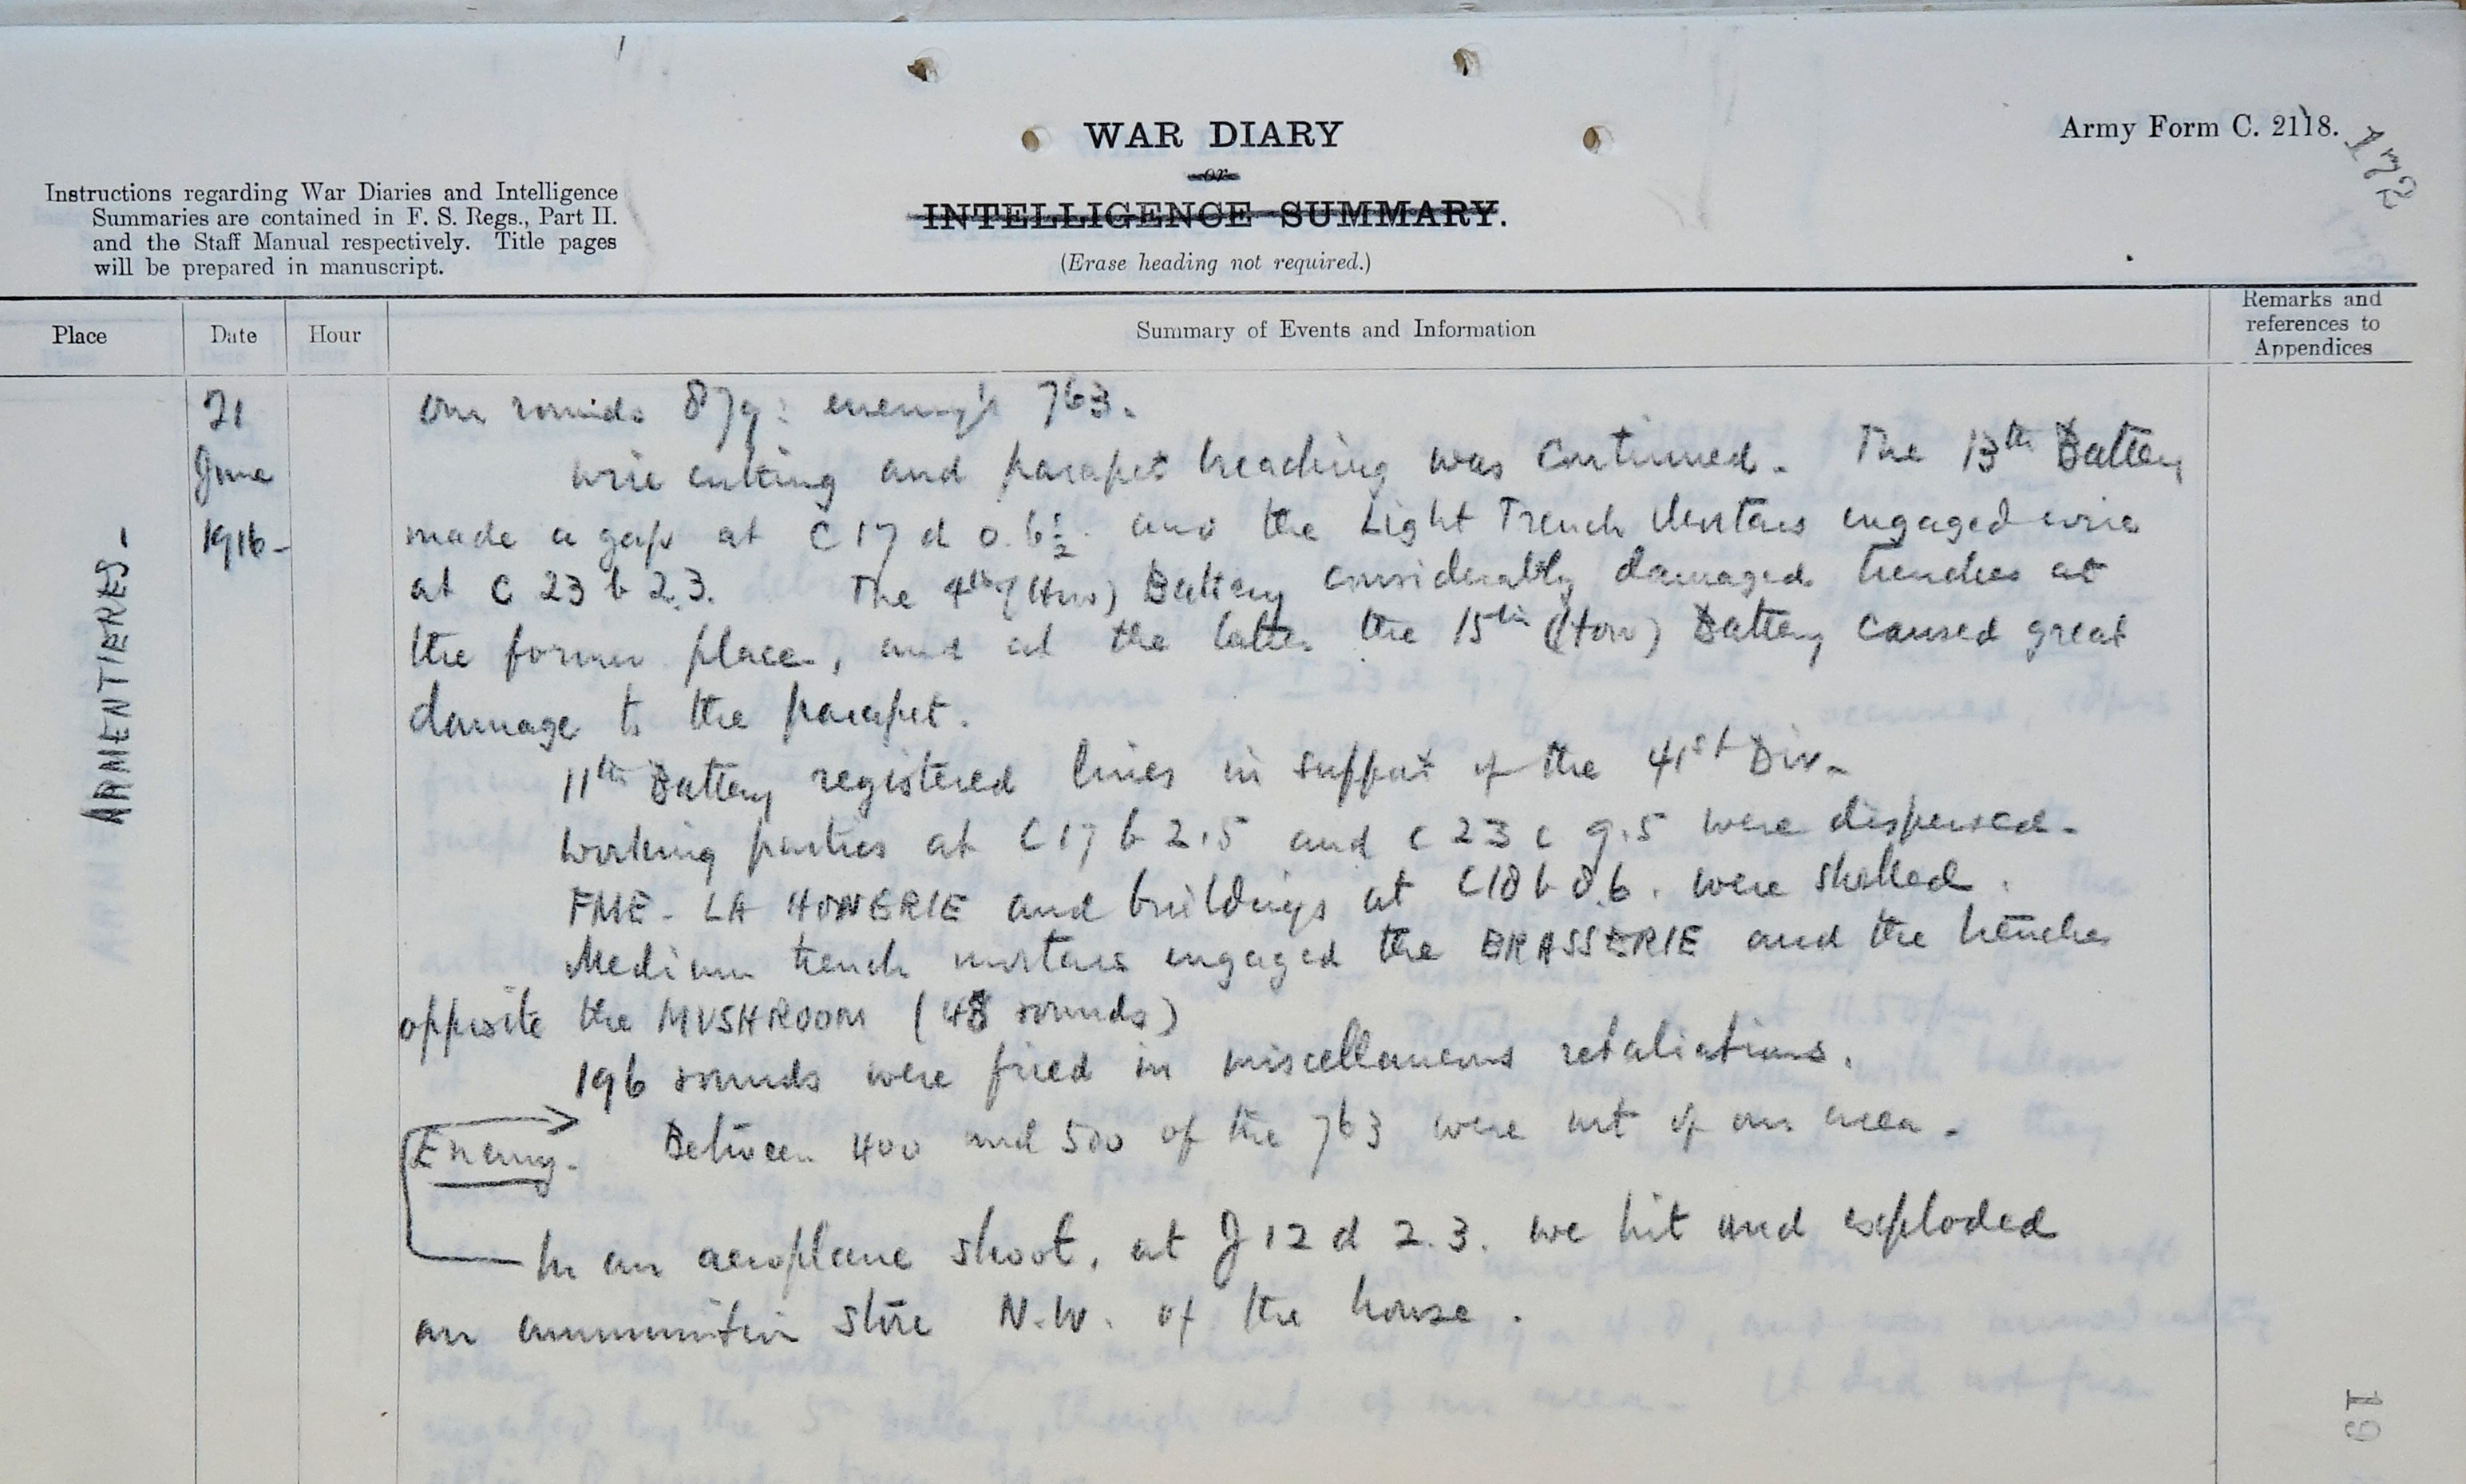 WAR DIARY
or
INTELLIGENCE SUMMARY.
(Erase heading not required.)
Army Form C. 2118.
172
Instructions regarding War Diaries and Intelligence
Summaries are contained in F. S. Regs., Part II.
and the Staff Manual respectively. Title pages
will be prepared in manuscript.
Place
Date
Hour
Summary of Events and Information
Remarks and
references to
Appendices
ARMENTIERES.
21
June
1916-
Our rounds 879: enemy's 763.
Wire cutting and parapet breaching was continued. The 13th Battery
made a gap at C 17 d 0.6½. and the Light Trench Mortars engaged wire
at C 23 b 2.3. The 4th (How) Battery considerably damaged trenches at
the former place, and at the latter the 15th (How) Battery caused great
damage to the parapet.
11th Battery registered lines in support of the 41st Div.
Working parties at C 17 b 2.5 and C 23 c 9.5 were dispersed.
FME. LA HONERIE and buildings at C18 b 8.6. were shelled.
Medium trench mortars engaged the BRASSERIE and the trenches
opposite the MUSHROOM (48 rounds)
196 rounds were fired in miscellaneous retaliations.
Enemy. Between 400 and 500 of the 763 were out of our area.
In an aeroplane shoot, at J 12 d 2.3. we hit and exploded
an ammunition store N.W. of the house.
19